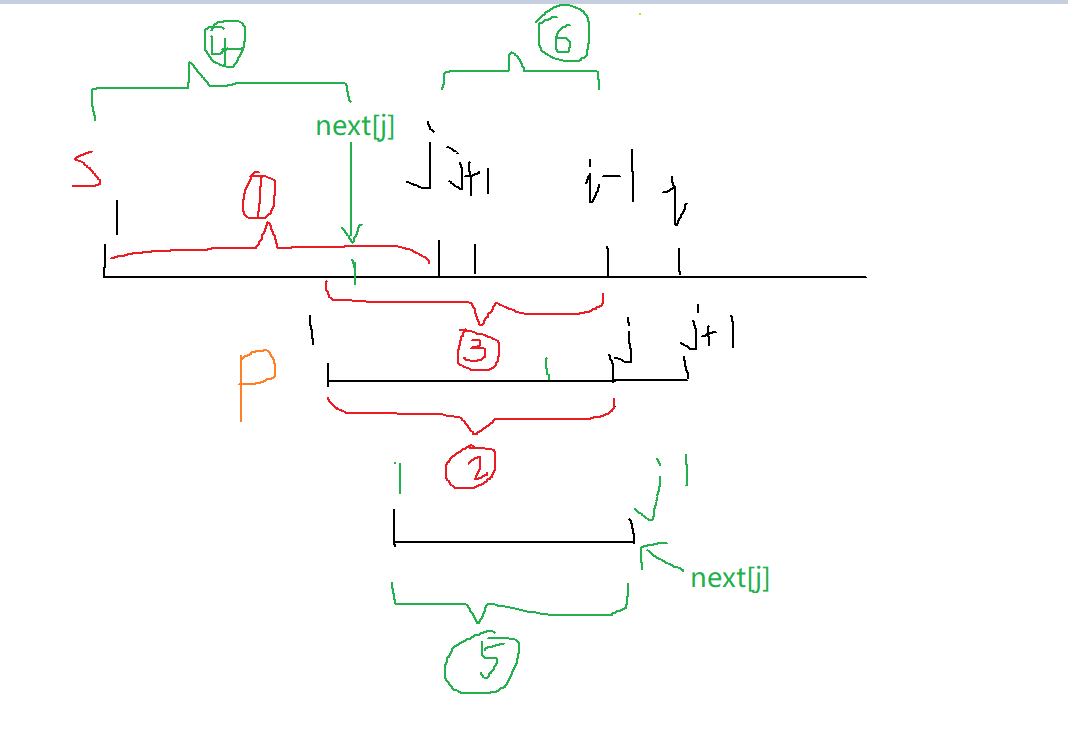 4 6
next[j]
S 1 ① j j+1 i-1 i
1 ③ j j+1
P
②
1 j 1
next[j]
5